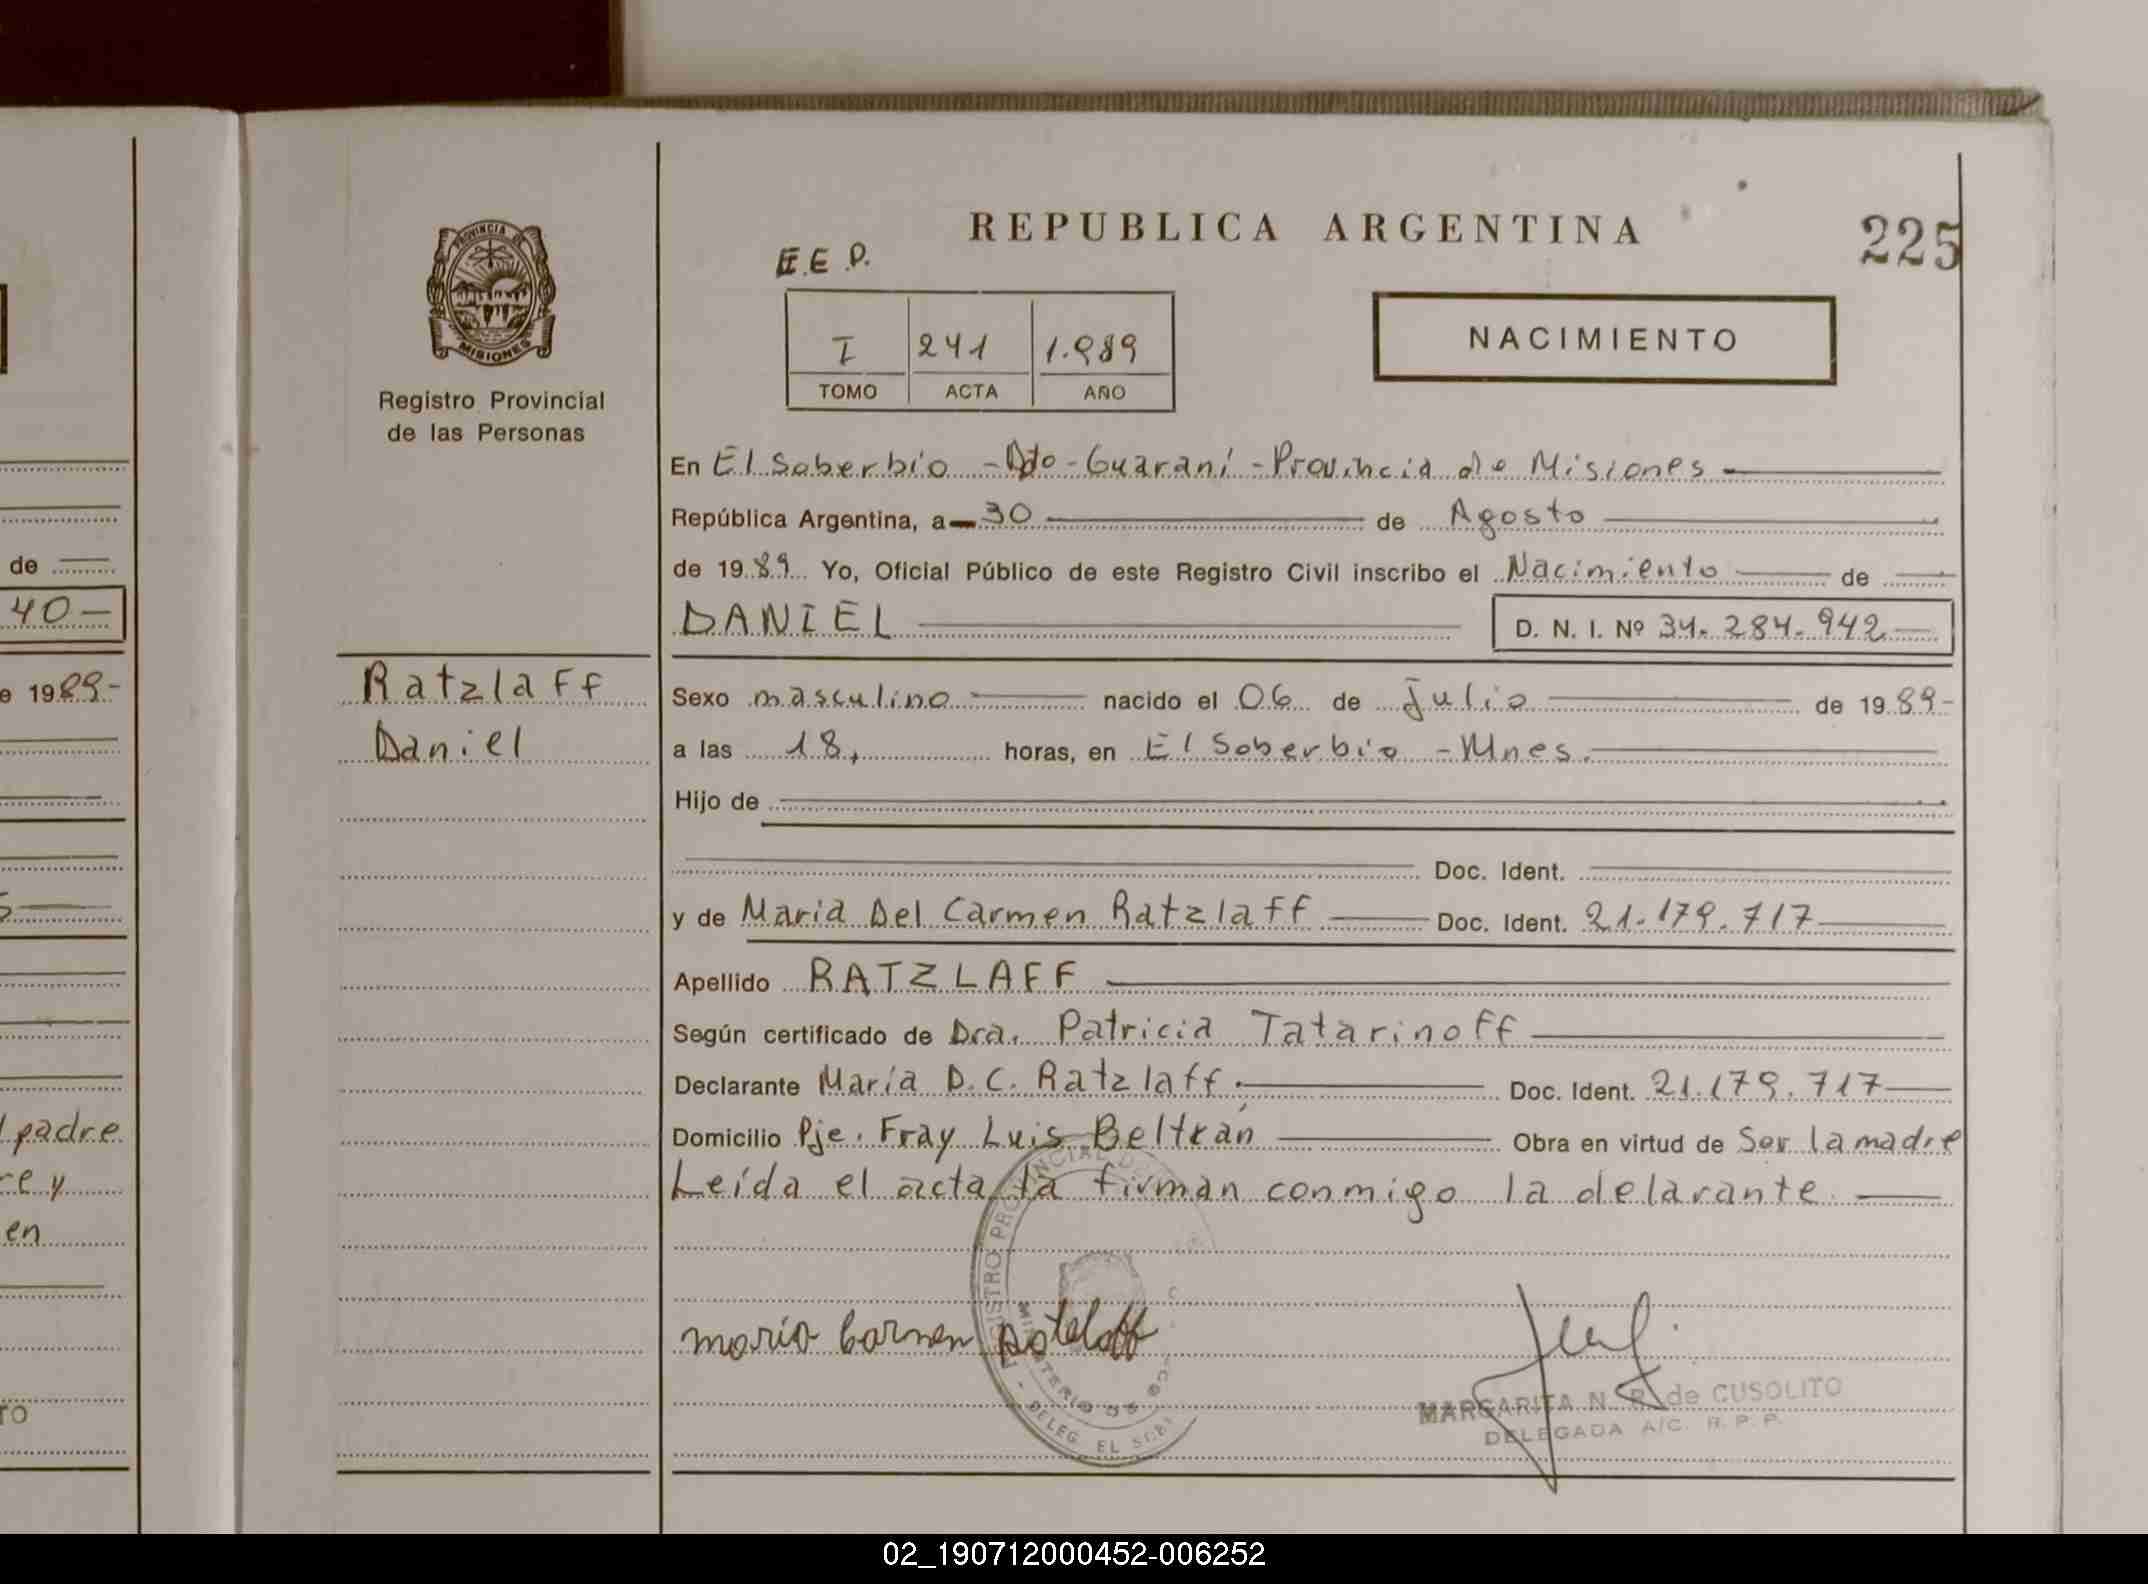 REPUBLICA ARGENTINA
225
E.E.D.
I 241 1.989
TOMO ACTA AÑO
NACIMIENTO
PROVINCIA DE
MISIONES
Registro Provincial
de las Personas
En El Soberbio - Dto - Guaraní - Provincia de Misiones
República Argentina, a 30 de Agosto
de 1989 Yo, Oficial Público de este Registro Civil inscribo el Nacimiento de
DANIEL D. N. I. Nº 34.284.942
Ratzlaff
Daniel
Sexo masculino nacido el 06 de Julio de 1989-
a las 18, horas, en El Soberbio - Mnes.
Hijo de
Doc. Ident.
y de Maria Del Carmen Ratzlaff Doc. Ident. 21.179.717
Apellido RATZLAFF
Según certificado de Dra. Patricia Tatarinoff
Declarante María D.C. Ratzlaff. Doc. Ident. 21.179.717
Domicilio Pje. Fray Luis Beltrán Obra en virtud de Ser la madre
Leída el acta la firman conmigo la delarante
maria Carmen Ratzlaff
MARGARITA N. R. de CUSOLITO
DELEGADA A/C. R. P. P.
de
40-
e 1989-
padre
re y
en
TO
02_190712000452-006252